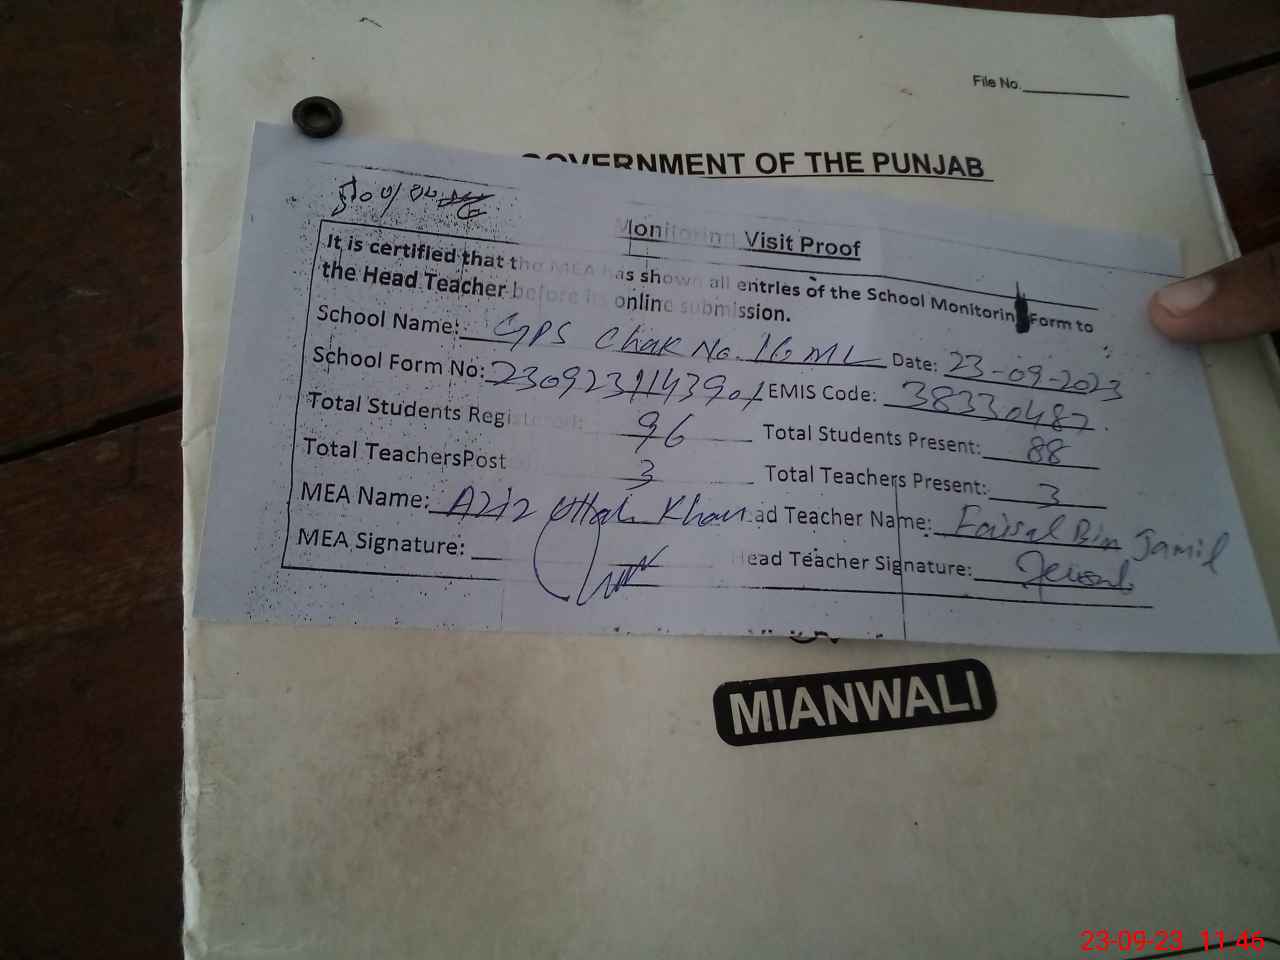 File No.
GOVERNMENT OF THE PUNJAB
Monitoring Visit Proof
It is certified that the MEA has shown all entries of the School Monitorin Form to
the Head Teacher before its online submission.
School Name: GPS Chak No. 16 ML Date: 23-09-2023
School Form No: EMIS Code: 38330487
Total Students Registered: 96 Total Students Present: 88
Total TeachersPost 3 Total Teachers Present: 3
MEA Name: Aziz Ullah Khan ad Teacher Name: Faisal Bin Jamil
MEA Signature: Head Teacher Signature:
MIANWALI
23-09-23 11:46